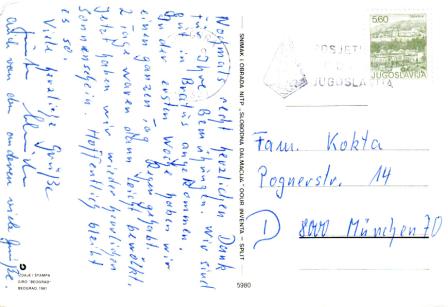 Nochmals recht herzlichen Dank
für Ihre Bemühungen. Wir sind
gut in angekommen.
In der ersten Woche haben wir
einen ganzen Tag Regen gehabt.
2 Tage waren dann leicht bewölkt.
Jetzt haben wir wieder herrlichen
Sonnenschein. Hoffentlich bleibt
es so.
Viele herzliche Grüße
auch von den anderen viele Grüße.
SNIMAK I OBRADA NITP „SLOBODNA DALMACIJA“ OOUR INVENTA — SPLIT
IZDAJE I ŠTAMPA
BIRO "BEOGRAD"
BEOGRAD, 1981
5980
5,60
JUGOSLAVIJA
POSJETITE
JUGOSLAVIJA
Fam. Kokta
Pognerstr. 14
D
8000 München 70